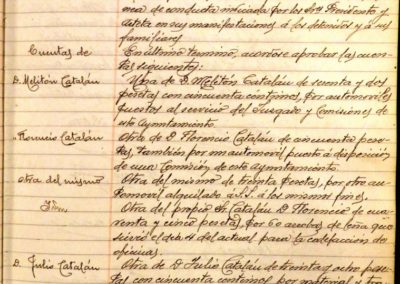 nea de conducta iniciada por los Sres Presidente y
deleta en sus manifestaciones á los detenidos y á sus
familiares
Cuentas de
En último término, acordóse aprobar las cuen-
tas siguientes:
D. Melitón Catalán
Una de D. Melitón Catalán de sesenta y dos
pesetas con cincuenta céntimos, por automóviles
puestos al servicio del Juzgado y Comisiones de
este Ayuntamiento.
" Florencio Catalán
Otra de D. Florencio Catalán de cincuenta pese-
tas, también por un automóvil puesto á disposición
de una Comisión de este Ayuntamiento.
Otra del mismo
Otra del mismo de treinta pesetas, por otro au-
tomóvil alquilado á los mismos fines.
Idm
Otra del propio Sr Catalán D. Florencio de cua-
renta y cinco pesetas por 60 arrobas de leña que
sirvió el día 4 del actual para la calefacción de
oficinas.
D. Julio Catalán
Otra de D. Julio Catalán de treinta y ocho pese-
tas con cincuenta céntimos por material y tra